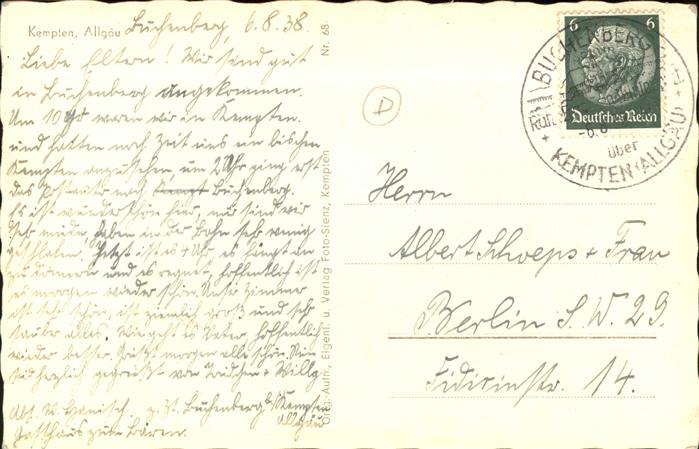 Kempten, Allgäu
Buchenberg, 6.8.38.
Liebe Eltern! Wir sind gut
in Buchenberg angekommen.
Um 10 waren wir in Kempten
und hatten noch Zeit uns ein bischen
Kempten anzusehen, um 2 Uhr ging erst
das Postauto nach Buchenberg.
Es ist wunderschön hier, nur sind wir
sehr müde, haben in der Bahn sehr wenig
geschlafen. Jetzt ist es 4 Uhr, es fängt an
zu donnern und es regnet, hoffentlich ist
es morgen wieder schön. Unser Zimmer
ist sehr schön, ist ziemlich groß und sehr
sauber alles. Wie geht es Vater, hoffentlich
wieder besser. Grüßt morgen alle schön. Nun
seid herzlich gegrüßt von + Willy
Abs. W. Hanisch. z. Zt. Buchenberg b/Kempten
Allgäu
Gasthaus zum Bären.
Nr. 68
Orig.-Aufn., Eigent. u. Verlag Foto-Sienz, Kempten
D
6 6
Deutsches Reich
BUCHENBERG
über
KEMPTEN (ALLGÄU)
Herrn
Albert Schoeps + Frau
Berlin S.W. 29.
Fidicinstr. 14.